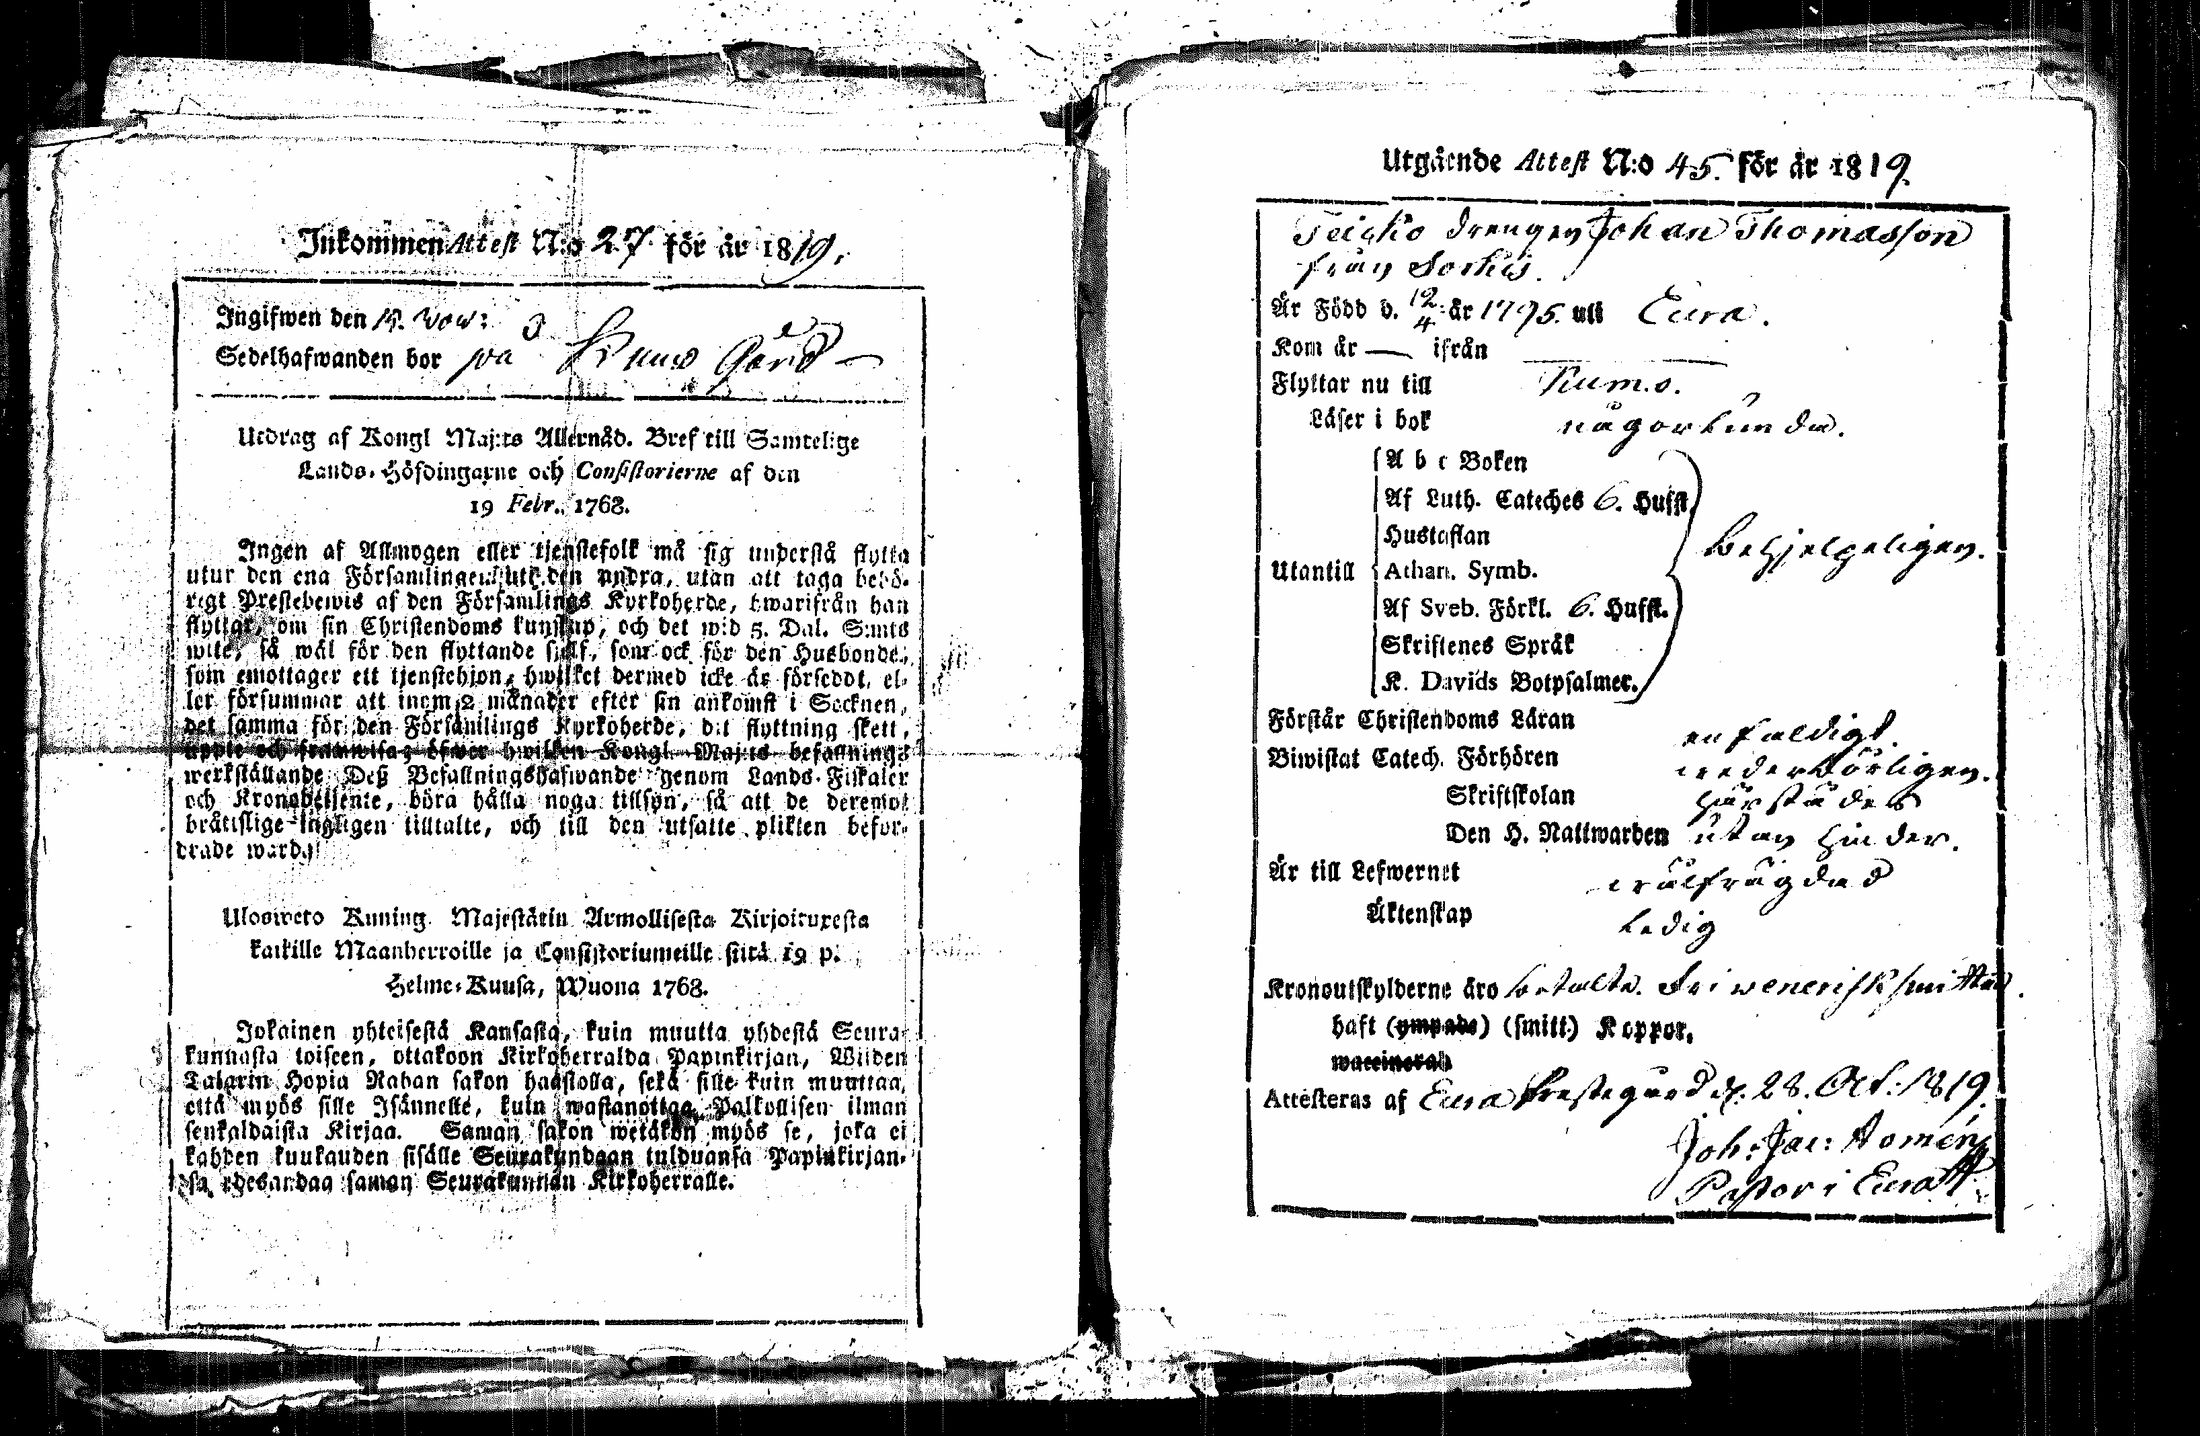 Inkommen Attest N:o 27 för år 1819.
Ingifwen den 15. Now:
Sedelhafwanden bor på Gård
Utdrag af Kongl Maj:ts Allernåd. Bref till Samtelige
Lands-Höfdingarne och Consistorierne af den
19 Febr. 1768.
Ingen af Allmogen eller tjenstefolk må sig understå flytta
utur den ena Församlingen uti den andra, utan att taga behö-
rigt Prestebewis af den Församlings Kyrkoherde, hwarifrån han
flyttar, om sin Christendoms kunskap, och det wid 5. Dal. S:mts
wite, så wäl för den flyttande sjelf, som ock för den Husbonde,
som emottager ett tjenstehjon, hwilket dermed icke är försedt, el-
ler försummar att inom 2 månader efter sin ankomst i Socknen,
det samma för den Församlings Kyrkoherde, dit flyttning skett,
uppte och framwisa; öfwer hwilken Kongl. Maj:ts befallnings
werkställande Deß Befallningshafwande genom Lands-Fiskaler
och Kronobetjente, böra hålla noga tillsyn, så att de deremot
bråttslige lagligen tilltalte, och till den utsatte plikten befor-
drade warda.
Ulosweto Kuning. Majestätin Armollisesta Kirjoituxesta
kaikille Maanherroille ja Consistoriumeille siitä 19 p.
Helme-Kuusa, Wuona 1768.
Jokainen yhteisestä Kansasta, kuin muutta yhdestä Seura-
kunnasta toiseen, ottakoon Kirkoherralda Papinkirjan, Wiiden
Talarin Hopia Rahan sakon haastolla, sekä sille kuin muuttaa,
että myös sille Isännelle, kuin wastanottaa Palkollisen ilman
senkaldaista Kirjaa. Saman sakon wetäkön myös se, joka ei
kahden kuukauden sisälle Seurakundaan tulduansa Papinkirjan-
sa edesandaa saman Seurakunnan Kirkoherralle.
Utgående Attest N:o 45. för år 1819.
drengen Johan Thomasson
från Sorkis.
Är Född d. 12/4 år 1795. uti Eura.
Kom år — ifrån —
Flyttar nu till Kumo.
Läser i bok någorlunda.
A b c Boken
Af Luth. Cateches 6. Hufst.
Hustaflan
Utantill Athan. Symb. behjelpeligen.
Af Sveb. Förkl. 6. Hufst.
Skriftenes Språk
K. Davids Botpsalmer.
Förstår Christendoms Läran enfaldigt.
Biwistat Catech. Förhören wederbörligen.
Skriftskolan härstädes
Den H. Nattwarden utan hinder.
Är till Lefwernet wälfrägdad
Äktenskap ledig
Kronoutskylderne äro betalte. Fri wenerisk smitta.
haft (ympade) (smitt.) Koppor.
waccinerad
Attesteras af Eura Prestegård d. 28. Oct: 1819.
Joh: Jac: Aomen
Pastor i Eura